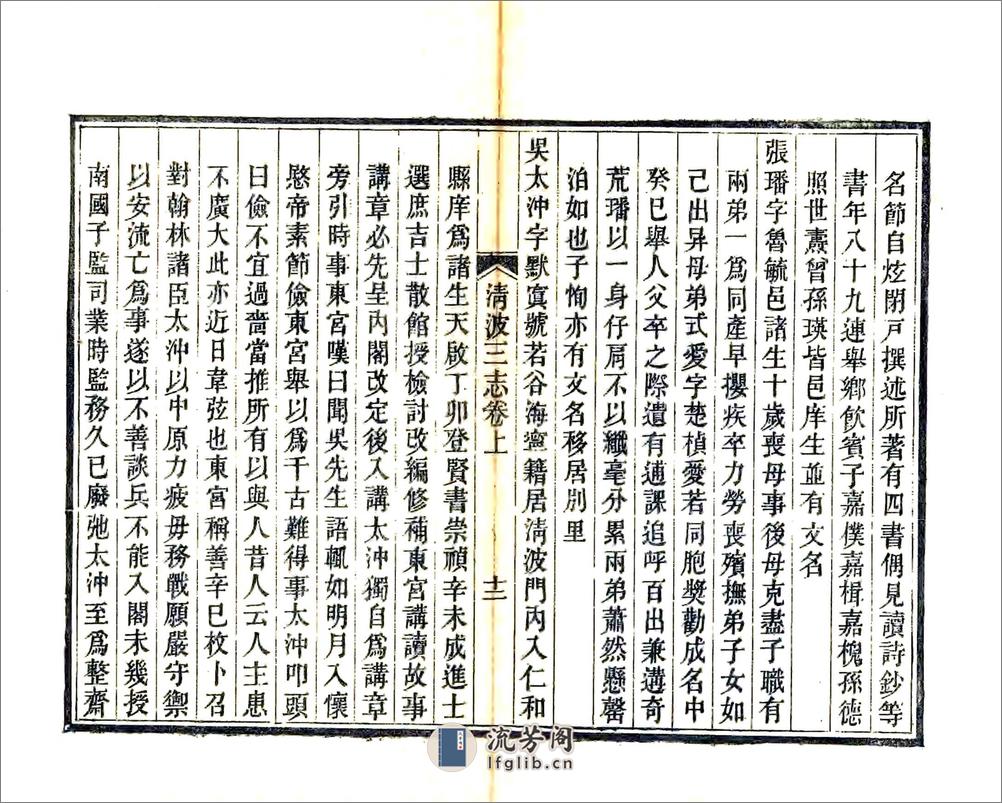 名節自炫閉戸撰述所著有四書偶見讀詩鈔等
書年八十九連舉鄉飲賓子嘉樸嘉楫嘉槐孫德
照世燾曾孫瑛皆邑庠生並有文名
張璠字魯毓邑諸生十歲喪母事後母克盡子職有
兩弟一爲同產早攖疾卒力勞喪殯撫弟子女如
己出异母弟式愛字楚楨愛若同胞奬勸成名中
癸巳舉人父卒之際遺有逋課追呼百出兼遘奇
荒璠以一身仔肩不以纖毫分累兩弟蕭然懸罄
泊如也子恂亦有文名移居别里
吳太沖字默寘號若谷海寧籍居清波門內入仁和
清波三志卷上
十二
縣庠爲諸生天啟丁卯登賢書崇禎辛未成進士
選庶吉士散館授檢討改編修補東宮講讀故事
講章必先呈內閣改定後入講太沖獨自爲講章
旁引時事東宮嘆曰聞吳先生語輒如明月入懷
愍帝素節儉東宮舉以爲千古難得事太沖叩頭
曰儉不宜過嗇當推所有以與人昔人云人主患
不廣大此亦近日韋弦也東宮稱善辛巳枚卜召
對翰林諸臣太沖以中原力疲毋務戰願嚴守禦
以安流亡爲事遂以不善談兵不能入閣未幾授
南國子監司業時監務久已廢弛太沖至爲整齋
流芳阁
lfglib.cn